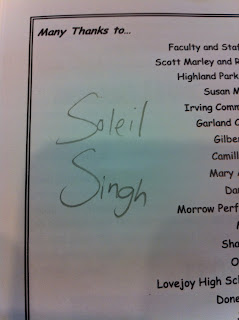 Many Thanks to...
Faculty and Staf
Scott Marley and R
Highland Park
Susan M
Irving Comm
Garland C
Gilber
Camill
Mary
Da
Morrow Perf
Sha
O
Lovejoy High Sc
Done
Soleil
Singh